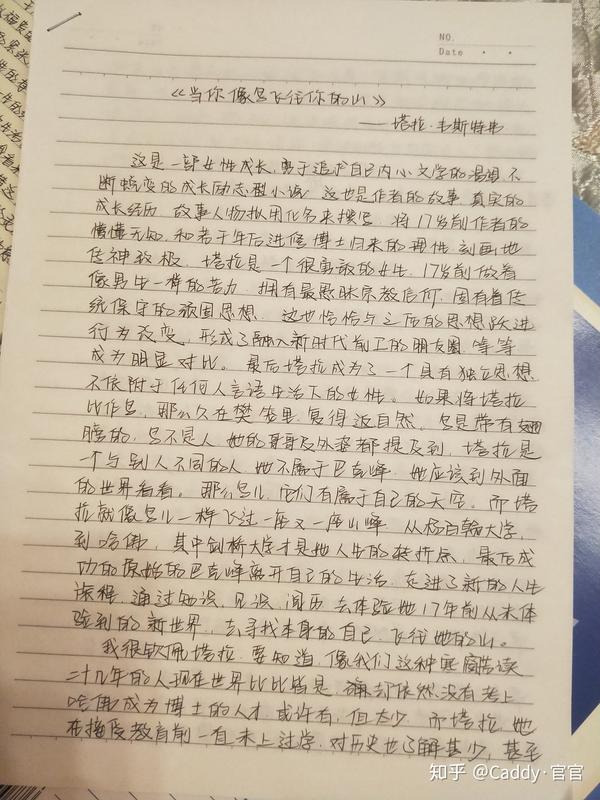 NO.
Date
《当你像鸟飞往你的山》
——塔拉·韦斯特弗
这是一部女性成长，勇于追求自己内心文学的渴望，不
断蜕变的成长励志型小说 这也是作者的故事 真实的
成长经历 故事人物拟用化名来撰写 将17岁前作者的
懵懂无知 和若干年后进修博士归来的理性 刻画地
传神致极。塔拉是一个很勇敢的女生，17岁前做着
像男生一样的苦力 拥有最愚昧宗教信仰 固有着传
统保守的顽固思想 这也恰恰与之后的思想跃进
行为改变，形成了融入新时代前卫的朋友圈 等等
成为明显对比。最后塔拉成为了一个具有独立思想
不依附于任何人言语生活下的女性。如果将塔拉
比作鸟，那么久在樊笼里 复得返自然。鸟是带有翅
膀的，鸟不是人 她的哥哥及外婆都提及到，塔拉是
一个与别人不同的人 她不属于巴克峰 她应该到外面
的世界看看。那么鸟儿 它们有属于自己的天空。而塔
拉就像鸟儿一样飞过一座又一座山峰 从杨百翰大学，
到哈佛，其中剑桥大学才是她人生的转折点，最后成
功的原始的巴克峰离开自己的生活 走进了新的人生
课程，通过知识，见识，阅历 去体验她17年前从未体
验到的新世界，去寻找本身的自己 飞往她的山。
我很钦佩塔拉 要知道，像我们这种寒窗苦读
二十几年的人现在世界比比皆是 却依然没有考上
哈佛成为博士的人才 或许有，但太少 而塔拉 她
在接受教育前一直未上过学，对历史也了解甚少，甚至
知乎 @Caddy·官官